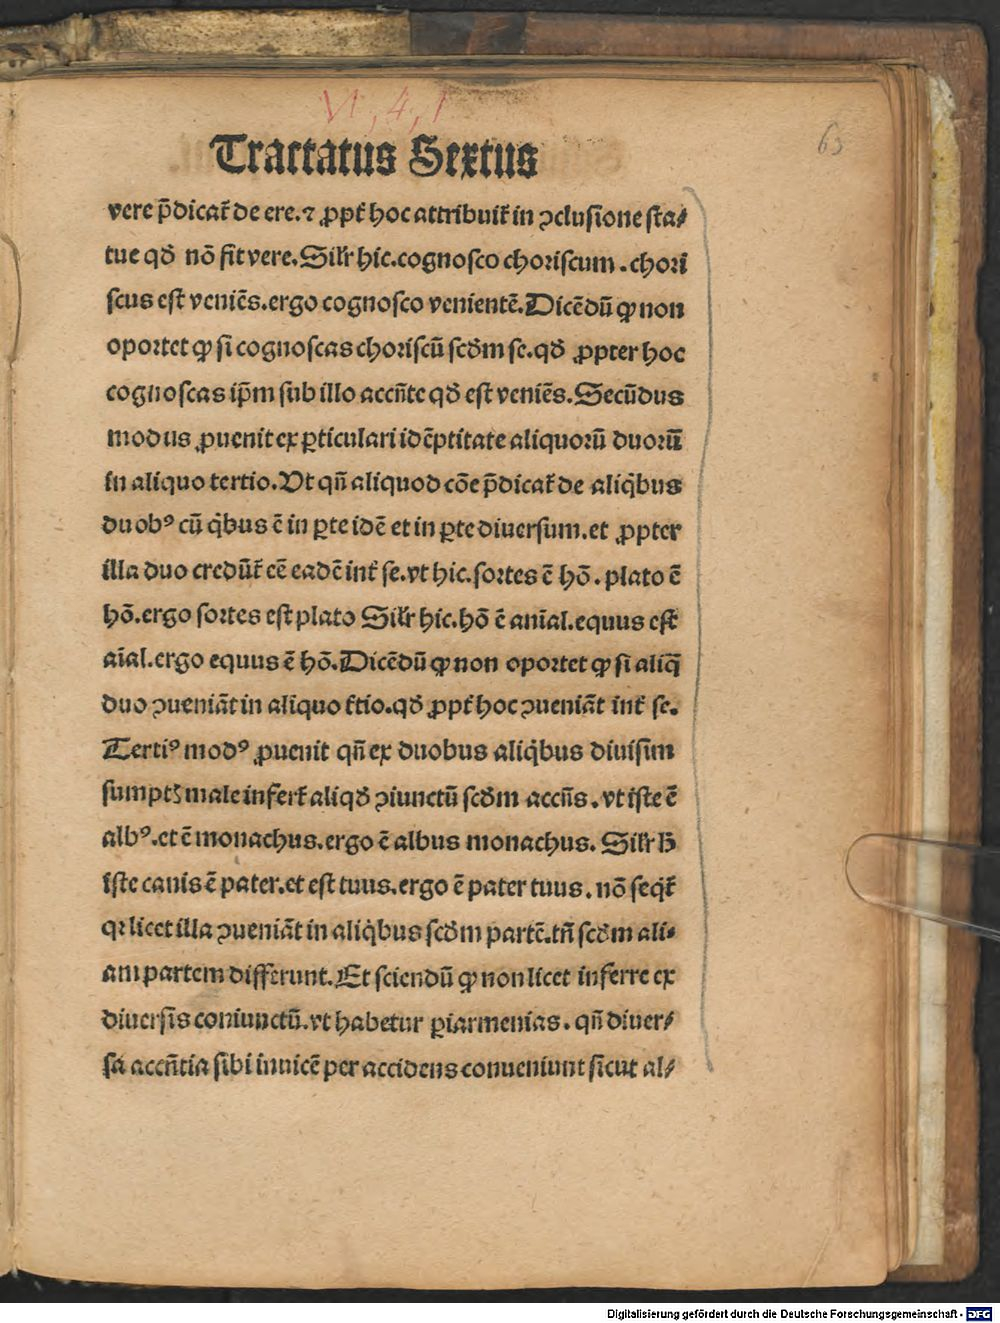 VI, 4, 1
63
Tractatus Sextus
vere p̄dicat᷑ de ere.⁊ ꝓpt᷑ hoc attribuit᷑ in ↄclusione sta⸗
tue qđ nō fit vere. Silr̄ hic. cognosco choriscum. chori
scus est veniēs. ergo cognosco venientē. Dicēdū ꝙ non
oportet ꝙ si cognoscas choriscū scđm se. qđ ꝓpter hoc
cognoscas ip̄m sub illo accn̄te qđ est veniēs. Secūdus
modus ꝓuenit ex ꝑticulari idēptitate aliquorū duorū
in aliquo tertio. Vt qn̄ aliquod cōe p̄dicat᷑ de aliq̇bus
duobꝰ cū q̇bus ē in ꝑte idē et in ꝑte diuersum. et ꝓpter
illa duo credūt᷑ eē eadē int᷑ se. vt hic. sortes ē hō. plato ē
hō. ergo sortes est plato Silr̄ hic. hō ē anīal. equus est
aīal. ergo equus ē hō. Dicēdū ꝙ non oportet ꝙ si aliq̄
duo ↄueniāt in aliquo t᷑tio. qđ ꝓpt᷑ hoc ↄueniāt int᷑ se.
Tertiꝰ modꝰ ꝓuenit qn̄ ex duobus aliq̇bus diuisim
sumptꝫ male infert᷑ aliqđ ↄiunctū scđm accn̄s. vt iste ē
albꝰ. et ē monachus. ergo ē albus monachus. Silr̄ h̄
iste canis ē pater. et est tuus. ergo ē pater tuus. nō seqt᷑
qꝛ licet illa ↄueniāt in aliq̇bus scđm partē. tn̄ scđm ali⸗
am partem differunt. Et sciendū ꝙ non licet inferre ex
diuersis coniunctū. vt habetur ꝑiarmenias. qn̄ diuer⸗
sa accn̄tia sibi inuicē per accidens conueniunt sicut al⸗
Digitalisierung gefördert durch die Deutsche Forschungsgemeinschaft - DFG